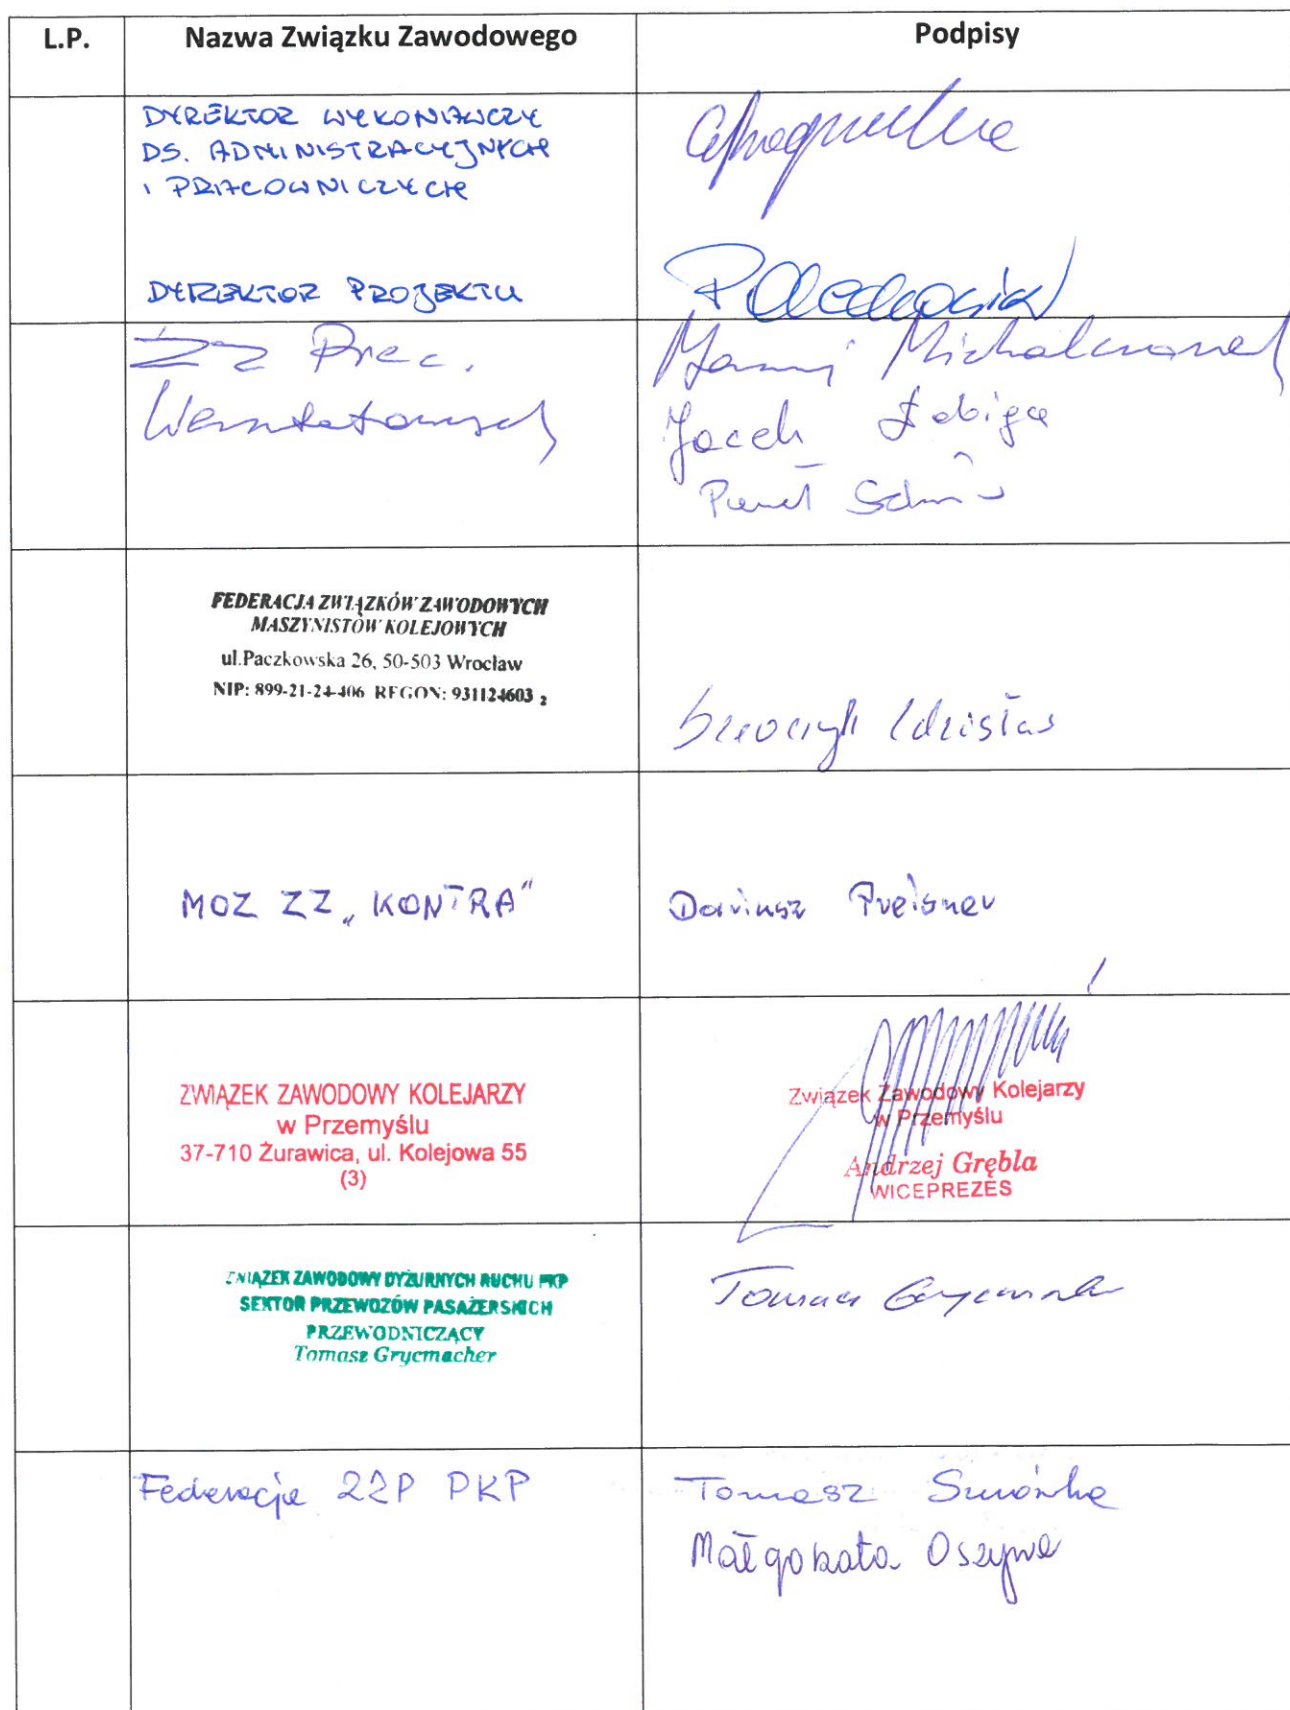 L.P. Nazwa Związku Zawodowego Podpisy
DYREKTOR WYKONAWCZY
DS. ADMINISTRACYJNYCH
I PRACOWNICZYCH
DYREKTOR PROJEKTU
ZZ Prac.
Warsztatowych
Jacek Łabiga
Paweł
FEDERACJA ZWIĄZKÓW ZAWODOWYCH
MASZYNISTÓW KOLEJOWYCH
ul.Paczkowska 26, 50-503 Wrocław
NIP: 899-21-24-406 REGON: 931124603 2
Zdzisław
MOZ ZZ „KONTRA" Dariusz Preisner
ZWIĄZEK ZAWODOWY KOLEJARZY
w Przemyślu
37-710 Żurawica, ul. Kolejowa 55
(3)
Związek Zawodowy Kolejarzy
w Przemyślu
Andrzej Grębla
WICEPREZES
ZWIĄZEK ZAWODOWY DYŻURNYCH RUCHU PKP
SEKTOR PRZEWOZÓW PASAŻERSKICH
PRZEWODNICZĄCY
Tomasz Grycmacher
Tomasz Grycmacher
Federacja ZZP PKP Tomasz
Małgorzata Oszywa